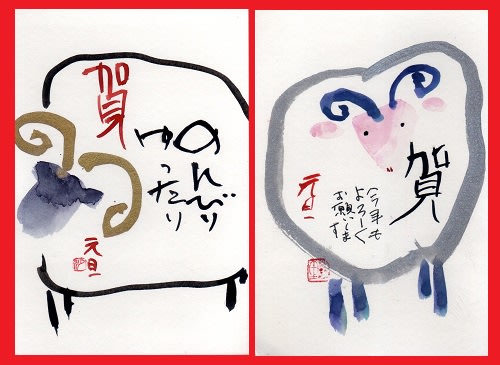 賀
のんびり
ゆったり
元旦
賀
今年も
よろしく
お願いしま
す
元旦